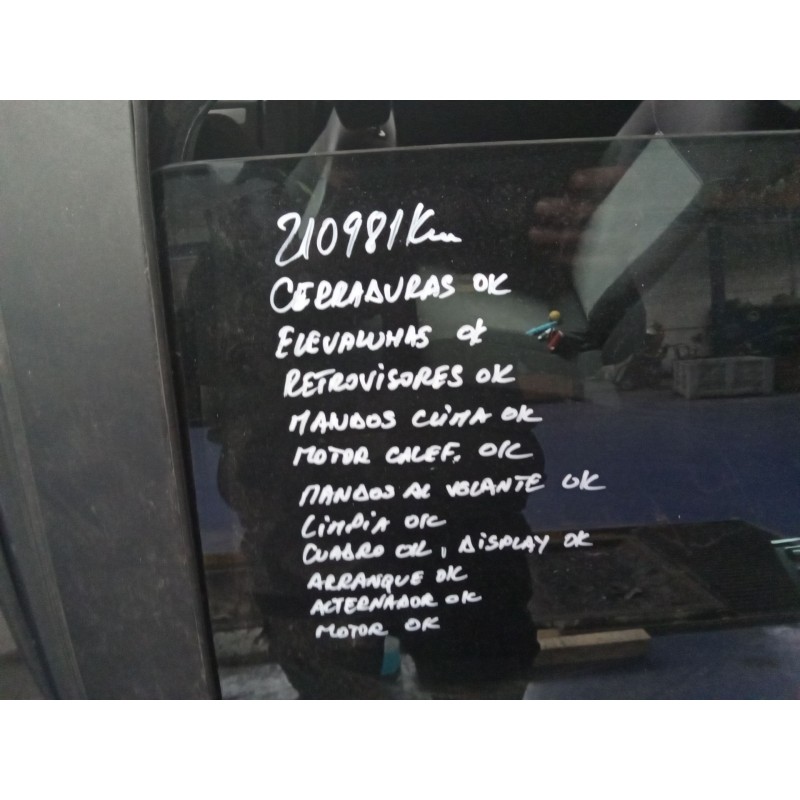 210981 Km
CERRADURAS OK
ELEVALUNAS OK
RETROVISORES OK
MANDOS CLIMA OK
MOTOR CALEF. OK
MANDOS AL VOLANTE OK
LIMPIA OK
CUADRO OK, DISPLAY OK
ARRANQUE OK
ALTERNADOR OK
MOTOR OK